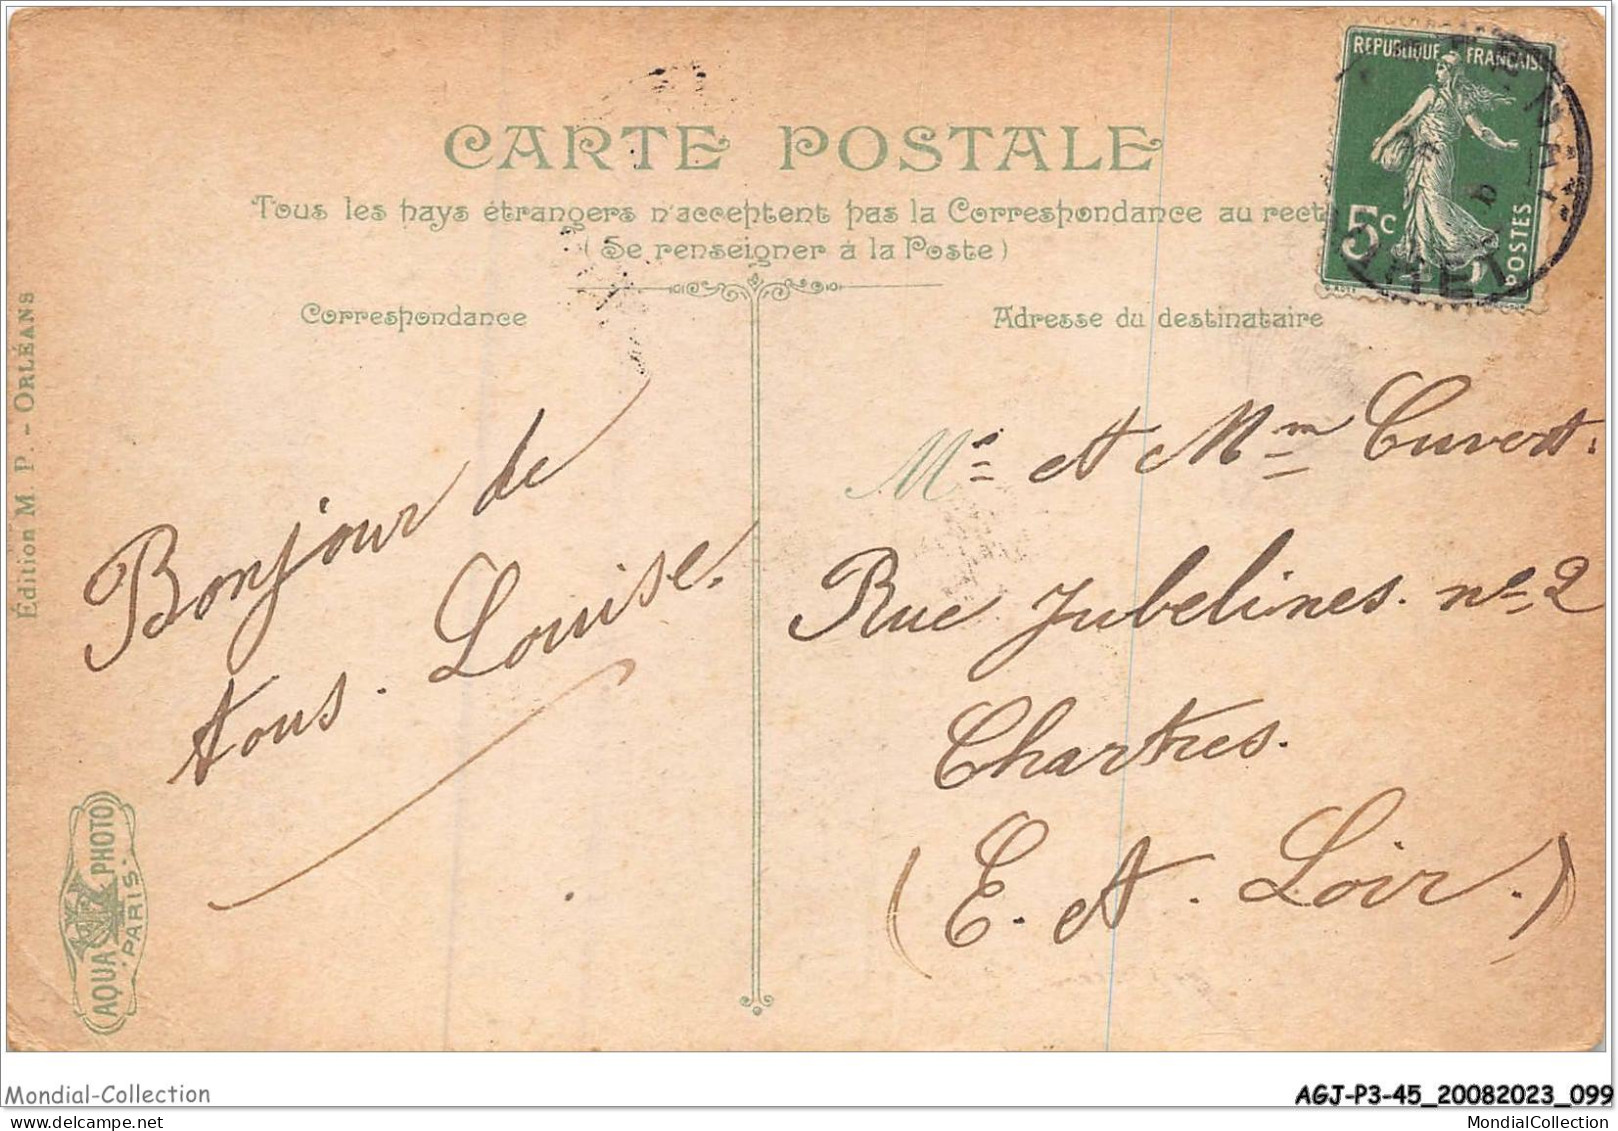 CARTE POSTALE
Tous les pays étrangers n'acceptent pas la Correspondance au rect
(Se renseigner à la Poste)
Correspondance
Adresse du destinataire
REPUBLIQUE FRANÇAISE
5c
POSTES
Édition M. P. - ORLÉANS
Bonjour de
tous. Louise.
Mr et Mm Cuvert.
Rue Jubelines. no 2
Chartres.
(E. et. Loir.)
AQUA PHOTO
PARIS
Mondial-Collection
AGJ-P3-45_20082023_099
MondialCollection